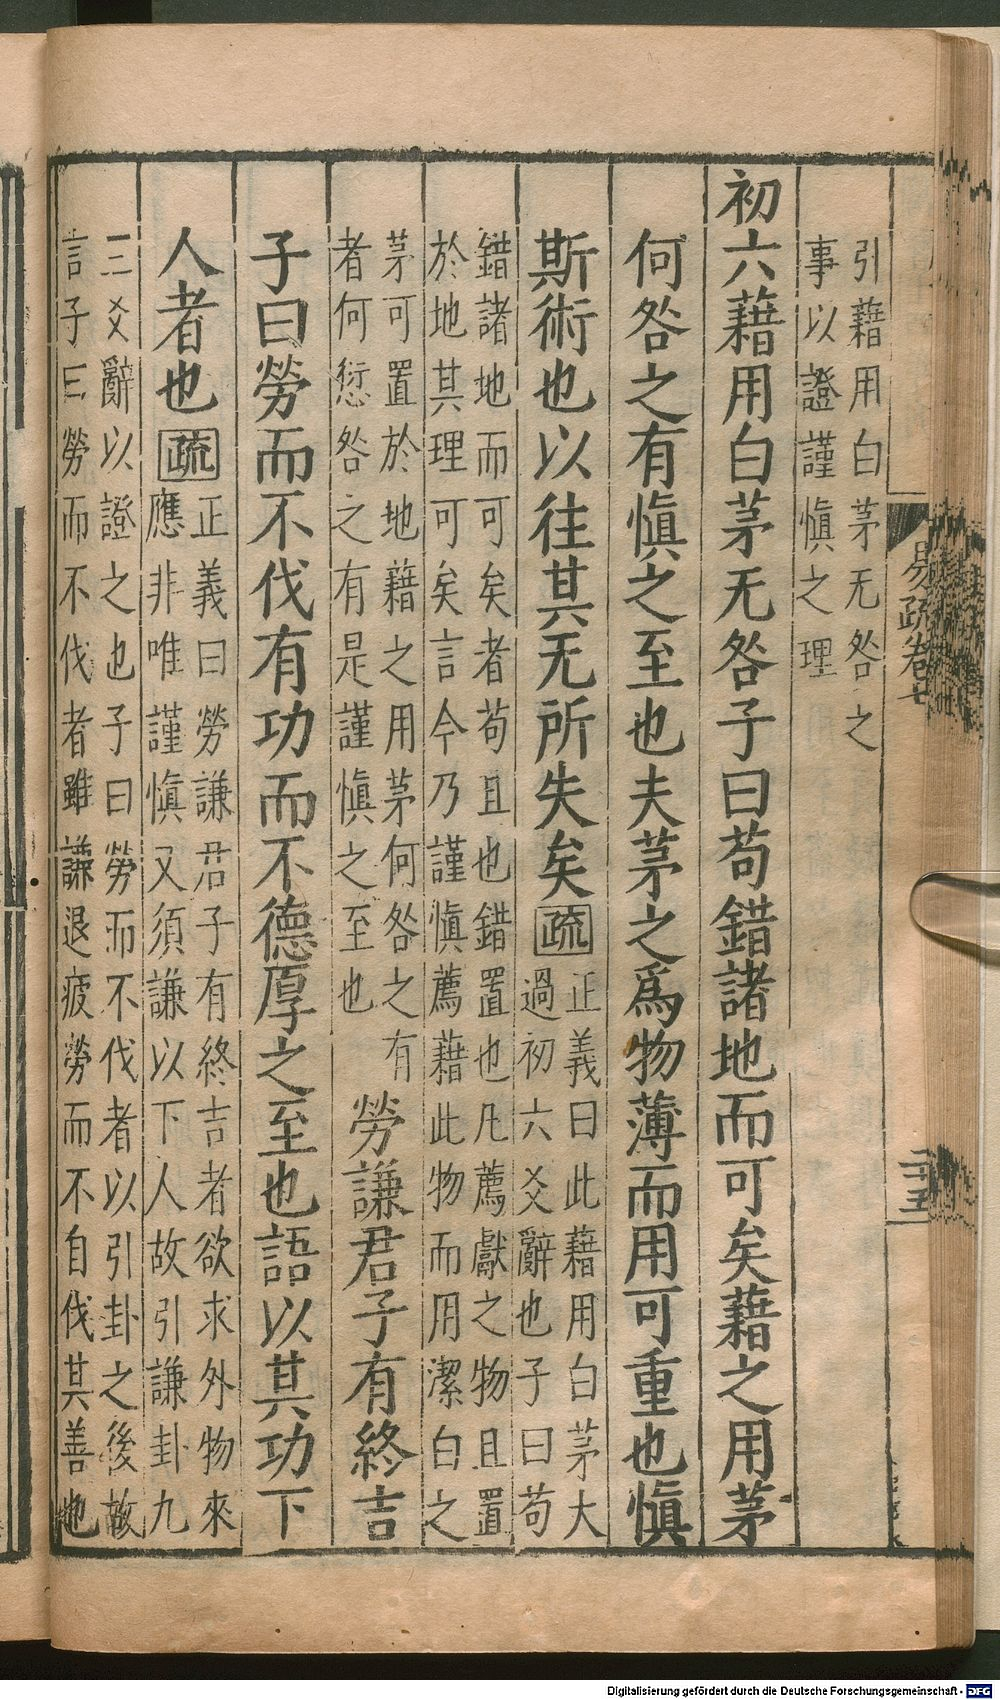 引藉用白茅无咎之
事以證謹愼之理
初六藉用白茅无咎子曰苟錯諸地而可矣藉之用茅
何咎之有愼之至也夫茅之爲物薄而用可重也愼
斯術也以往其无所失矣疏
正義曰此藉用白茅大
過初六爻辭也子曰苟
錯諸地而可矣者苟且也錯置也凡薦獻之物且置
於地其理可矣言今乃謹愼薦藉此物而用潔白之
茅可置於地藉之用茅何咎之有
者何愆咎之有是謹愼之至也
勞謙君子有終吉
子曰勞而不伐有功而不德厚之至也語以其功下
人者也疏
正義曰勞謙君子有終吉者欲求外物來
應非唯謹愼又須謙以下人故引謙卦九
三爻辭以證之也子曰勞而不伐者以引卦之後故
言子曰勞而不伐者雖謙退疲勞而不自伐其善也
易疏卷七
二十五
Digitalisierung gefördert durch die Deutsche Forschungsgemeinschaft - DFG